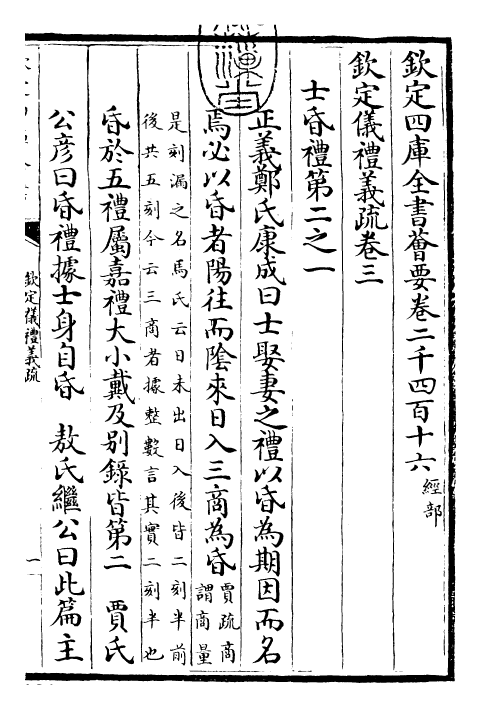 欽定四庫全書薈要卷二千四百十六經部
欽定儀禮義疏卷三
士昏禮第二之一
正義鄭氏康成曰士娶妻之禮以昏為期因而名
焉必以昏者陽往而陰來日入三商為昏賈疏商謂商量
是刻漏之名馬氏云日未出日入後皆二刻半前
後共五刻今云三商者據整數言其實二刻半也
昏於五禮屬嘉禮大小戴及别錄皆第二　賈氏
公彦曰昏禮據士身自昏　敖氏繼公曰此篇主
欽定儀禮義疏
一